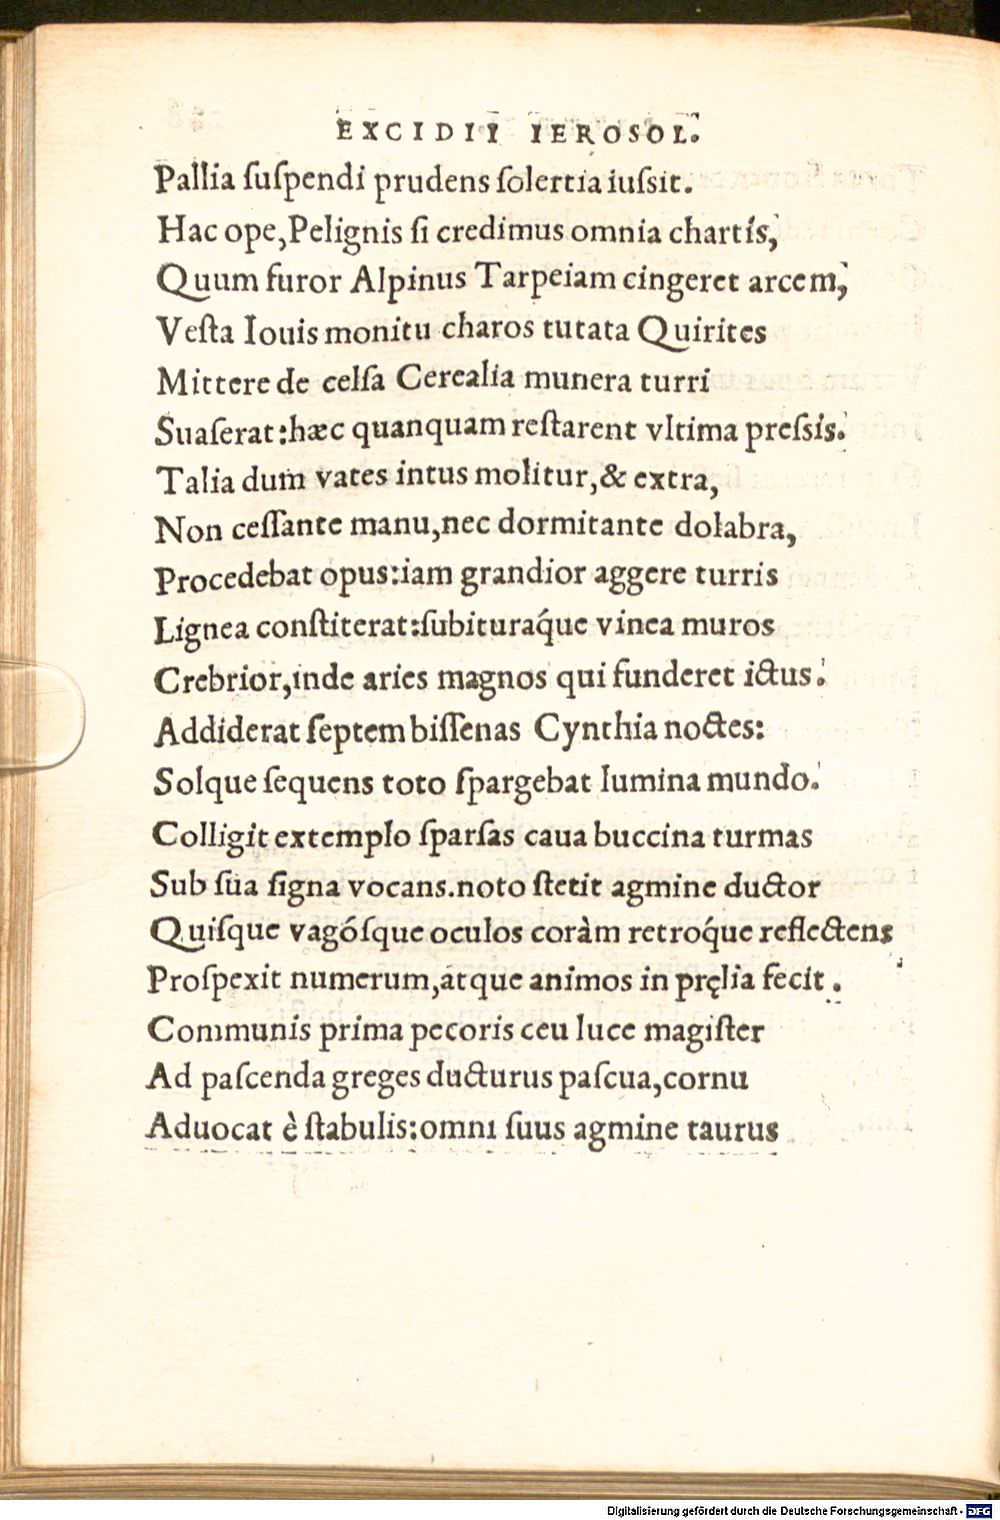 EXCIDII IEROSOL.
Pallia ſuſpendi prudens ſolertia iuſsit.
Hac ope,Pelignis ſi credimus omnia chartis,
Quum furor Alpinus Tarpeiam cingeret arcem,
Veſta Iouis monitu charos tutata Quirites
Mittere de celſa Cerealia munera turri
Suaſerat:hæc quanquam reſtarent vltima preſsis.
Talia dum vates intus molitur,& extra,
Non ceſſante manu,nec dormitante dolabra,
Procedebat opus:iam grandior aggere turris
Lignea conſtiterat:ſubituraq́ue vinea muros
Crebrior,inde aries magnos qui funderet ictus.
Addiderat ſeptem biſſenas Cynthia noctes:
Solque ſequens toto ſpargebat lumina mundo.
Colligit extemplo ſparſas caua buccina turmas
Sub ſua ſigna vocans.noto ſtetit agmine ductor
Quiſque vagóſque oculos coràm retroq́ue reflectens
Proſpexit numerum,atque animos in pręlia fecit.
Communis prima pecoris ceu luce magiſter
Ad paſcenda greges ducturus paſcua,cornu
Aduocat è ſtabulis:omni ſuus agmine taurus
Digitalisierung gefördert durch die Deutsche Forschungsgemeinschaft - DFG